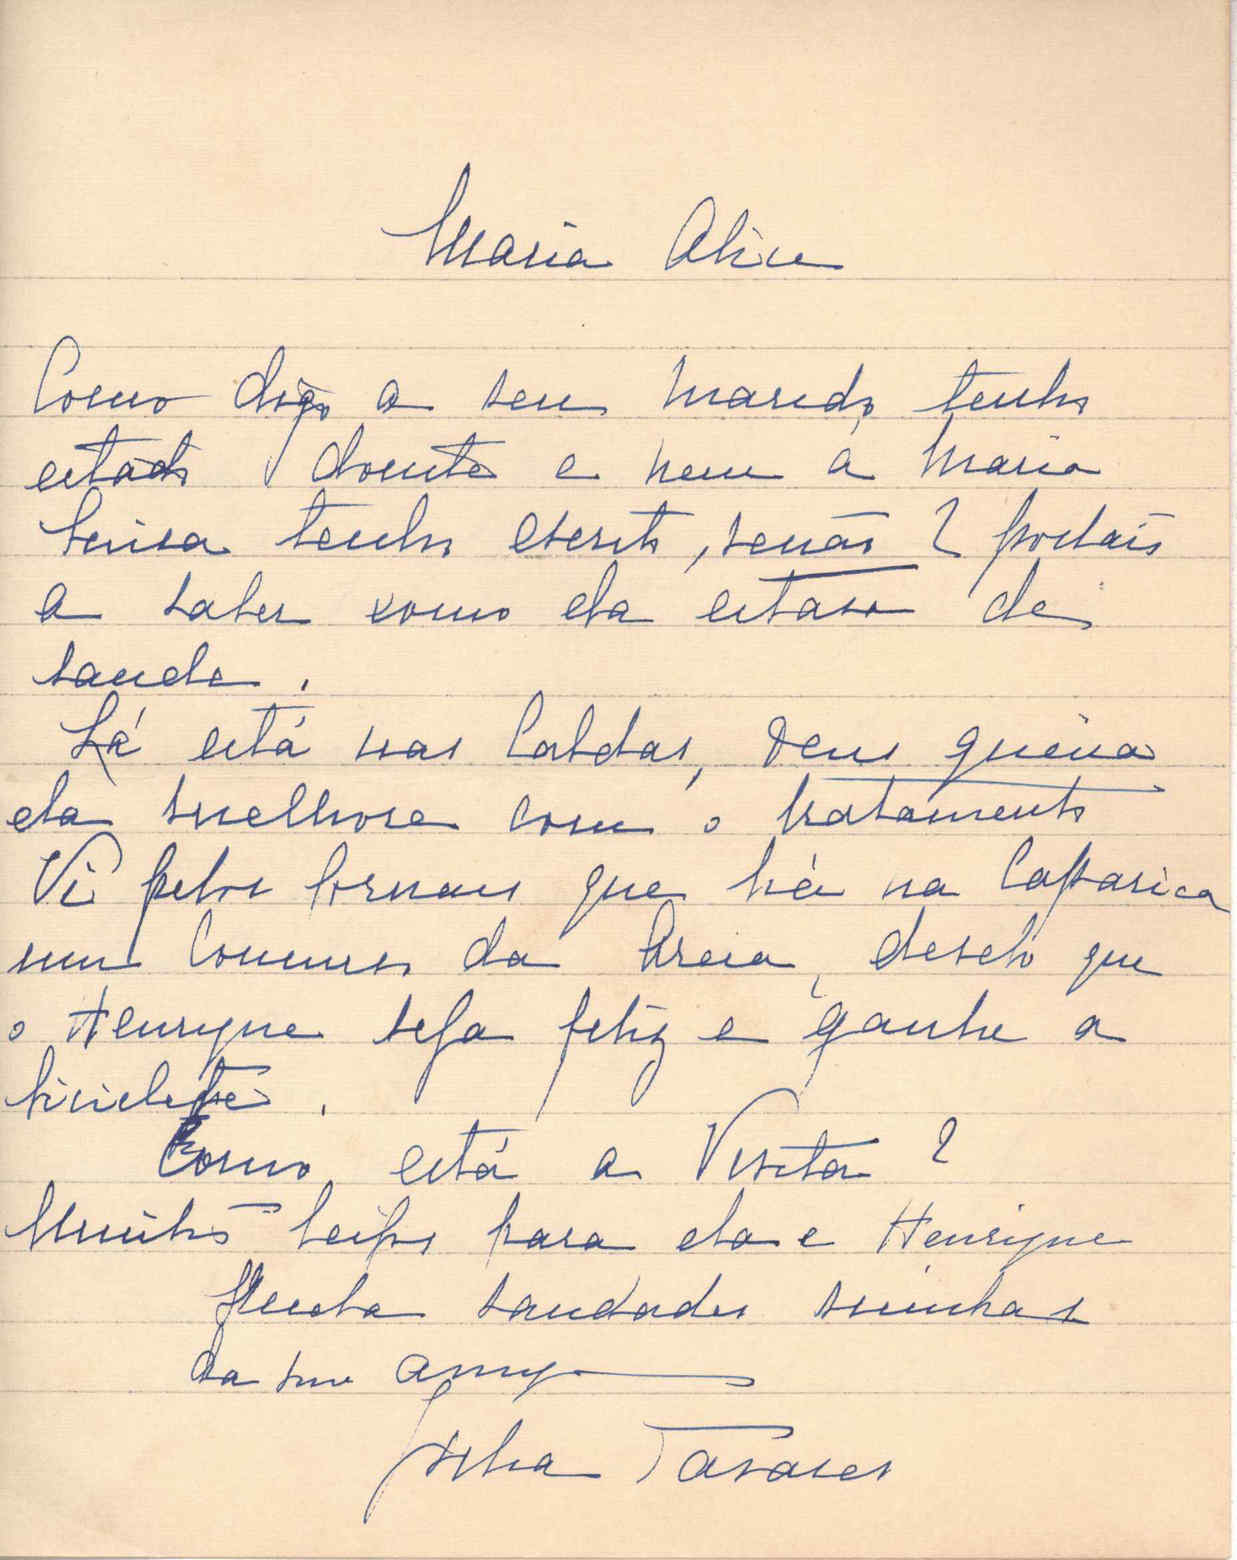 Maria Alice
Como digo a seu marido tenho
estado doente e nem a Maria
Luisa tenho escrito, senão 2 postais
a saber como ela estava de
saude.
Lá está nas Caldas, Deus queira
ela melhore com o tratamento
Vi pelos Jornais que há na Caparica
um Concurso da Areia, desejo que
o Henrique seja feliz e ganhe a
bicicleta.
Como está a Visita?
Muitos beijos para ela e Henrique
saudades minhas
da sua amiga
Tavares